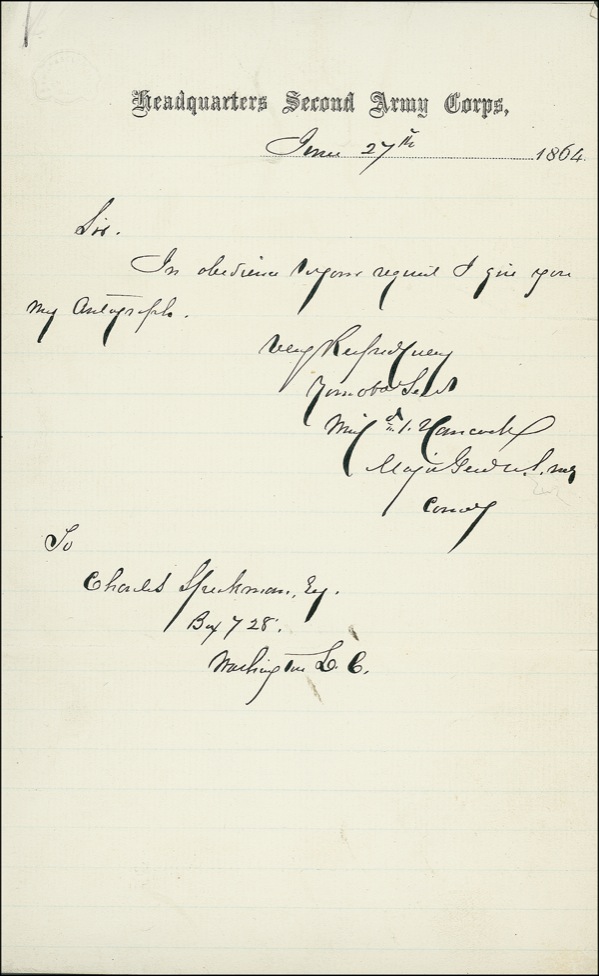 Headquarters Second Army Corps,
June 27th 1864.
Sir.
In obedience to your request I give you
my Autograph.
Very Respectfully
Your obdt Servt
Winf'd S. Hancock
Major Genl U.S.
Comdg
To
Charles Speckman, Esq.
Box 728.
Washington D. C.